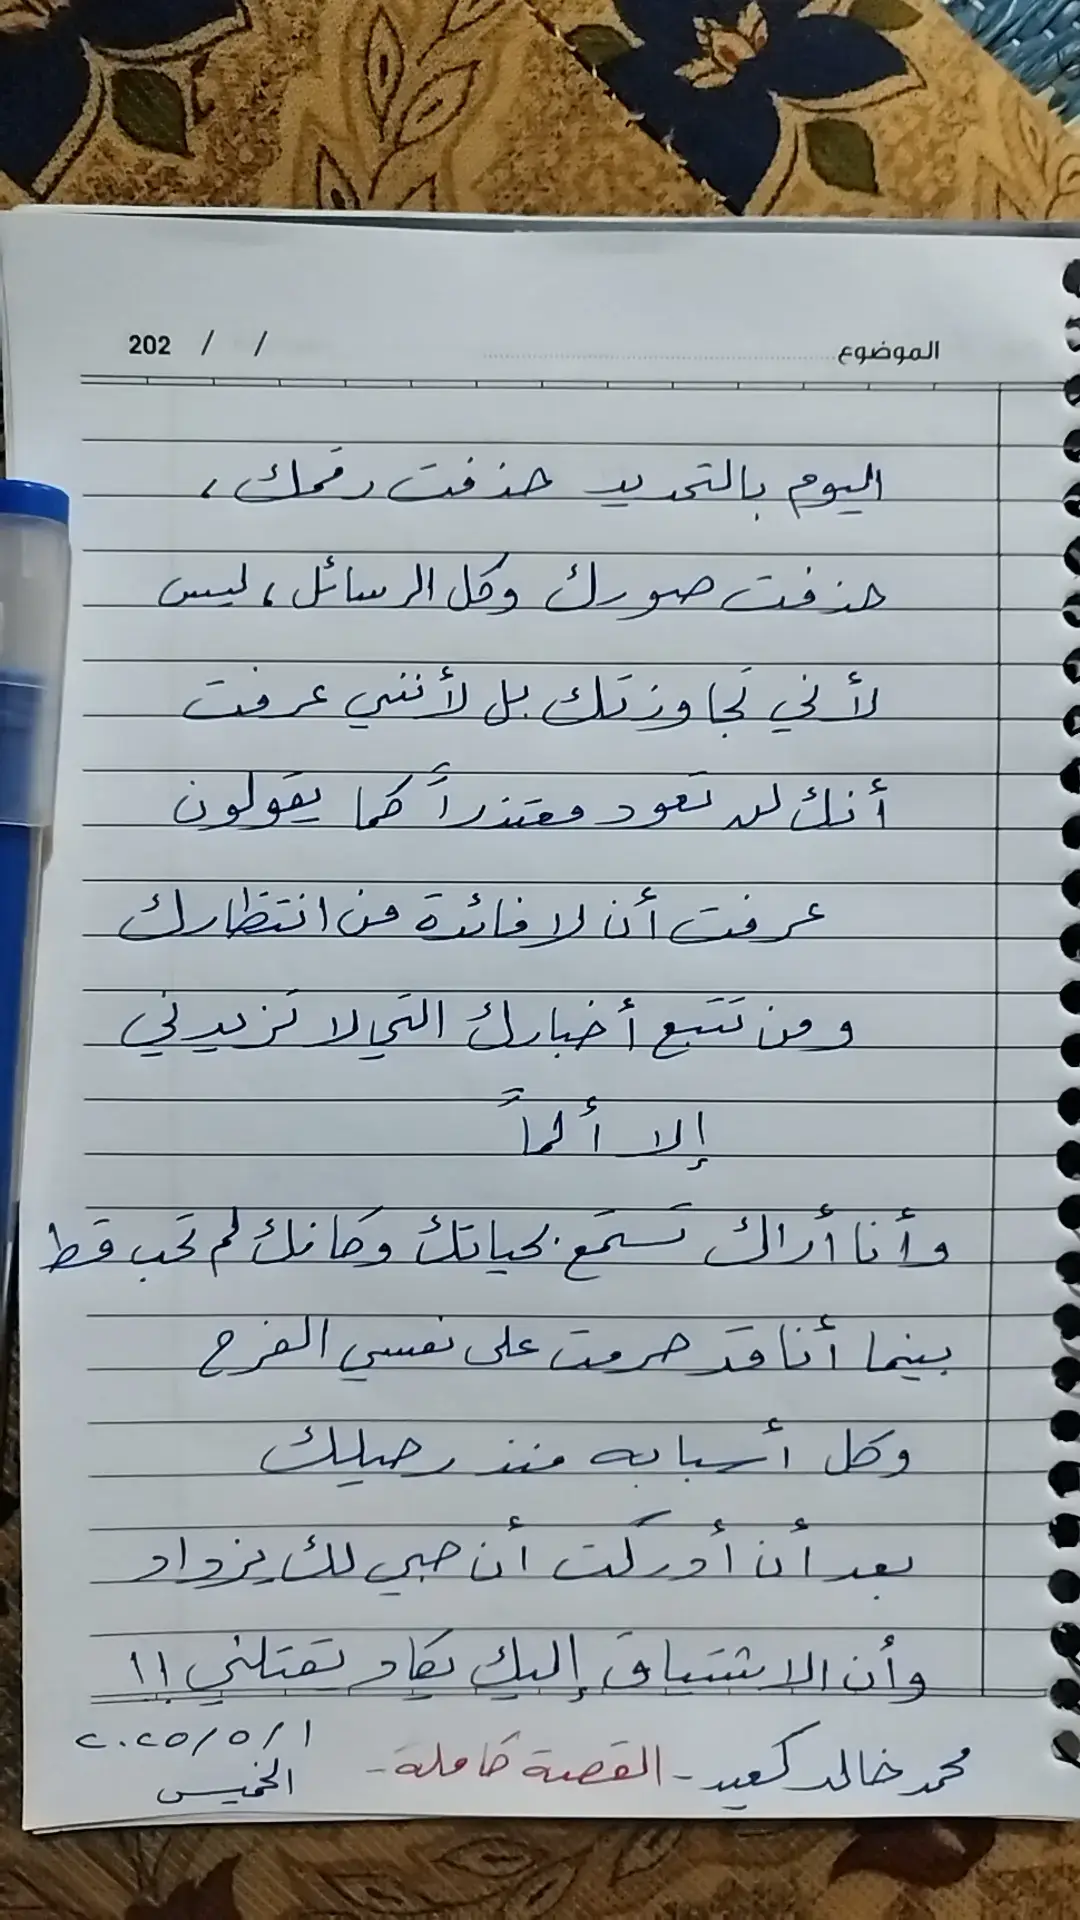 الموضوع ........ / / 202
اليوم بالتحديد حذفت رقمك،
حذفت صورك وكل الرسائل، ليس
لأني تجاوزتك بل لأنني عرفت
أنك لن تعود معتذراً كما يقولون
عرفت أن لا فائدة من انتظارك
ومن تتبع أخبارك التي لا تزيدني
إلا ألماً
وأنا أراك تستمتع بحياتك وكانك لم تحب قط
بينما أنا قد حرمت على نفسي الفرح
وكل أسبابه منذ رحيلك
بعد أن أدركت أن حبي لك يزداد
وأن الاشتياق إليك يكاد يقتلني !!
محمد خالد كعيد - القصة كاملة - ٢٠٢٥/٥/١
الخميس